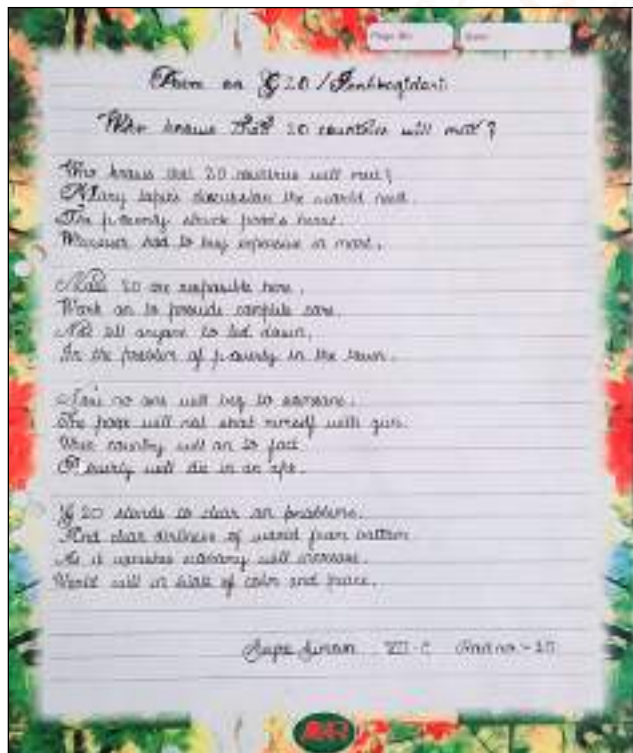 Page No.
Date
Poem on G20 / Janbhagidari
Who knows that 20 countries will meet?
Who knows that 20 countries will meet?
Many topics discussion the world need.
The poverty struck poor's heart.
Wherever had to buy expensive in mart.
Now 20 are responsible here,
Work on to provide complete care.
Not let anyone to led down,
In the problem of poverty in the town.
Now no one will beg to someone.
The poor will not shoot himself with gun.
country will on to fact
Poverty will die in an
G 20 stands to clear an problems.
And clear dirtiness of world from bottom
As it vanishes economy will increase.
World will in state of calm and peace.
Supe VII-C Roll no:- 25